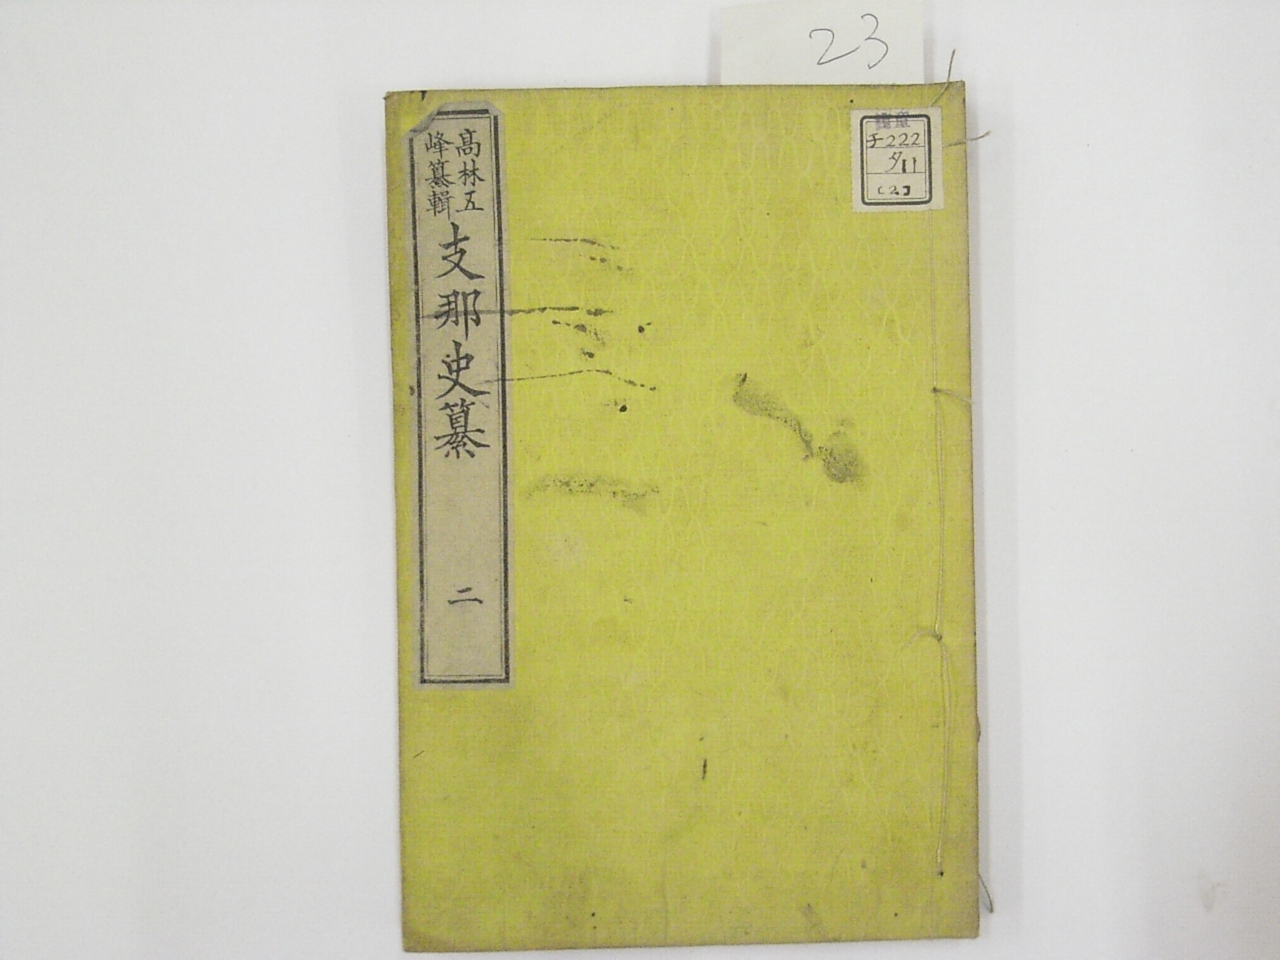 23
高林五
峰纂輯
支那史纂
二
チ222
タ11
〔2〕